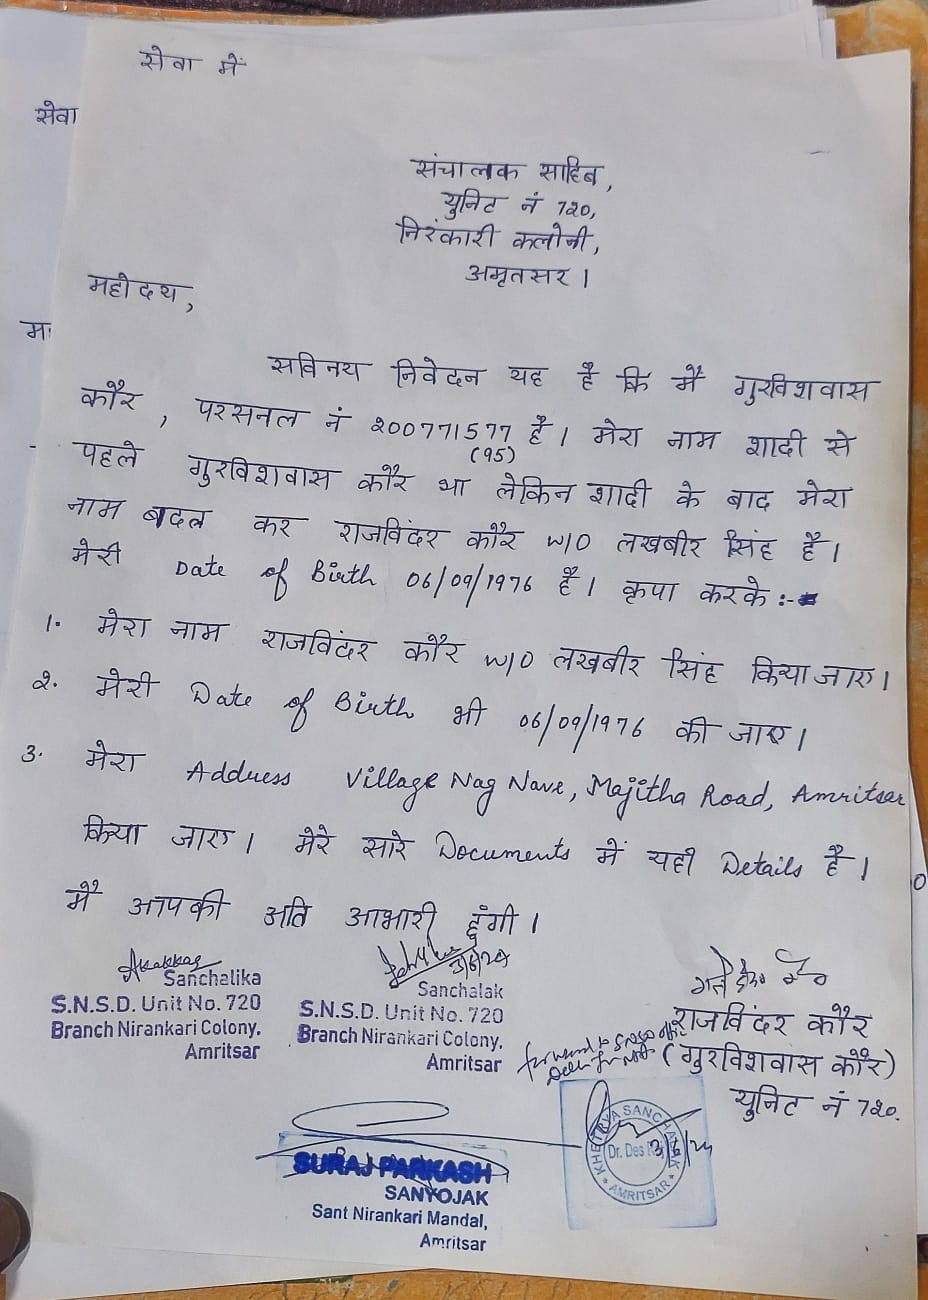 सेवा में
सेवा
संचालक साहिब,
युनिट नं 720,
निरंकारी कलोनी,
अमृतसर।
महोदय,
सविनय निवेदन यह है कि मैं गुरविशवास
कौर, परसनल नं 200771577 है। मेरा नाम शादी से
(95)
पहले गुरविशवास कौर था लेकिन शादी के बाद मेरा
नाम बदल कर राजविंदर कौर w/o लखबीर सिंह है।
मेरी Date of Birth 06/09/1976 है। कृपा करके :-
1. मेरा नाम राजविंदर कौर w/o लखबीर सिंह किया जाए।
2. मेरी Date of Birth भी 06/09/1976 की जाए।
3. मेरा Address Village Nag Nave, Majitha Road, Amritsar
किया जाए। मेरे सारे Documents में यही Details है।
मैं आपकी अति आभारी हुंगी।
Sanchalika
S.N.S.D. Unit No. 720
Branch Nirankari Colony,
Amritsar
Sanchalak
S.N.S.D. Unit No. 720
Branch Nirankari Colony,
Amritsar
राजविंदर कौर
(गुरविशवास कौर)
युनिट नं 720.
forward to
SURAJ PARKASH
SANYOJAK
Sant Nirankari Mandal,
Amritsar
KHETRIYA SANCHALAK
Dr. Des
AMRITSAR